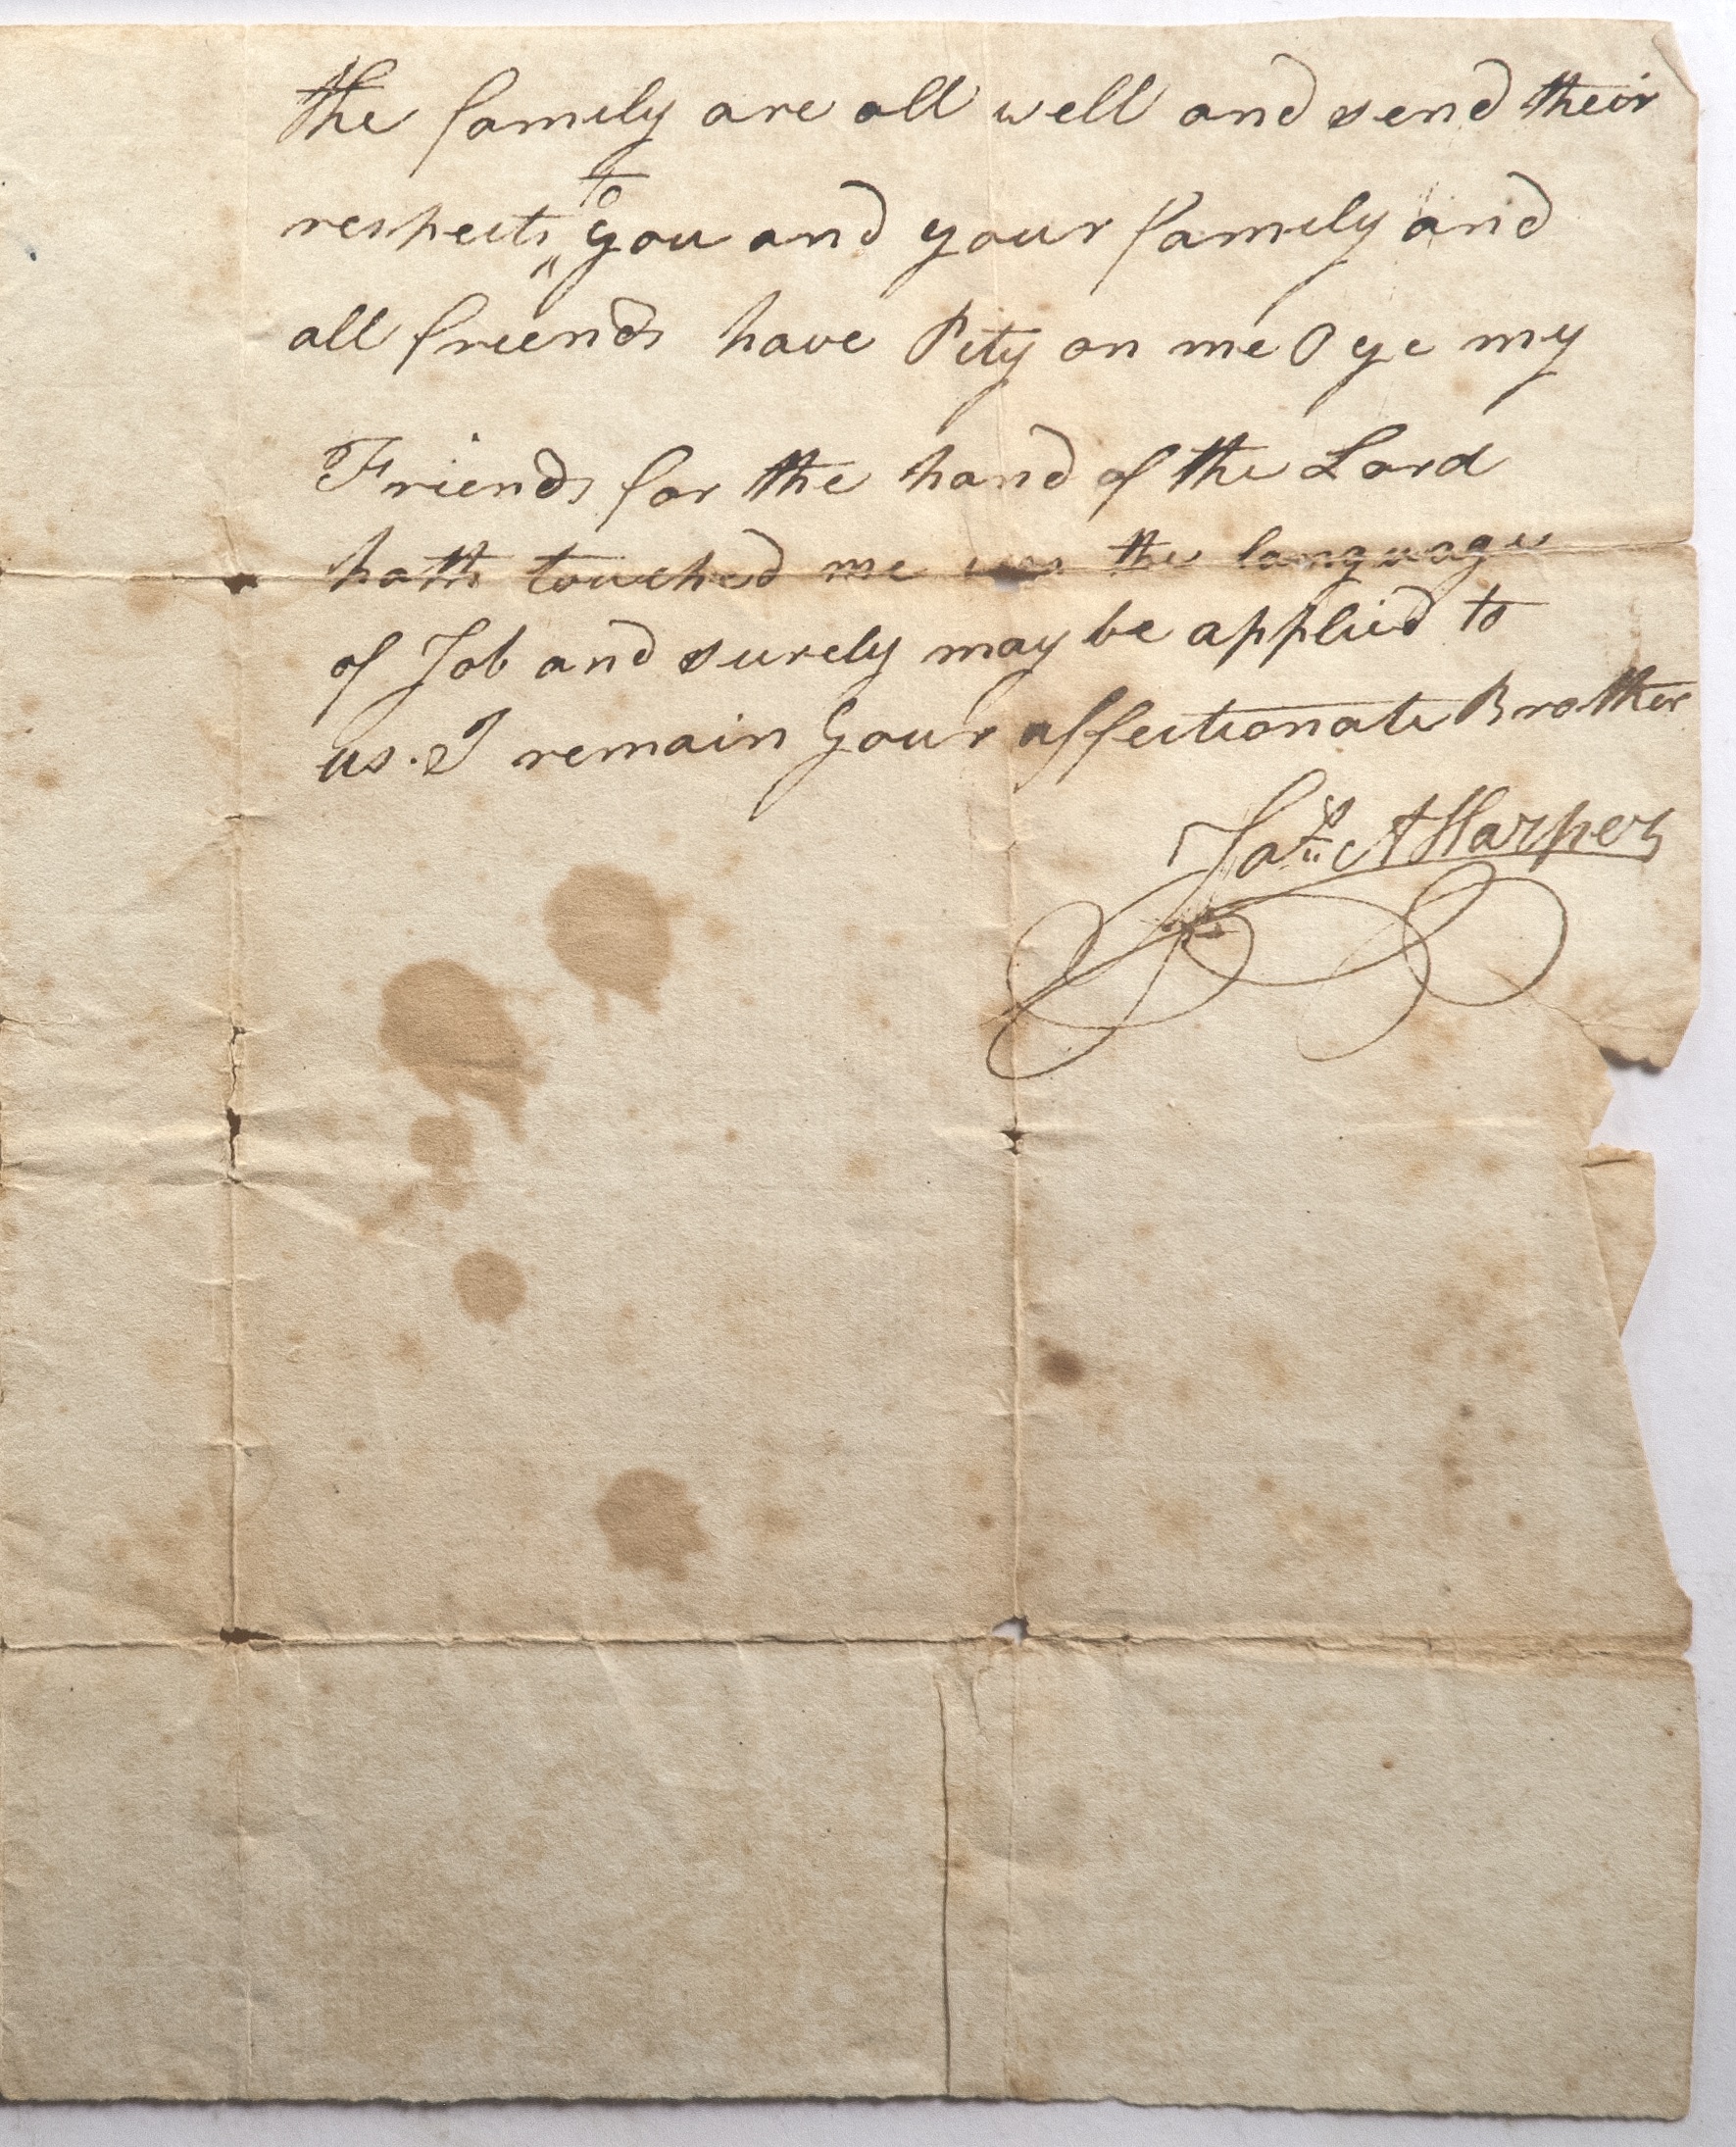 the family are all well and send their
respects to you and your family and
all friends have Pity on me O ye my
Friends for the hand of the Lord
hath touched me was the language
of Job and surely may be applied to
us. I remain your affectionate Brother
Jas A Harper